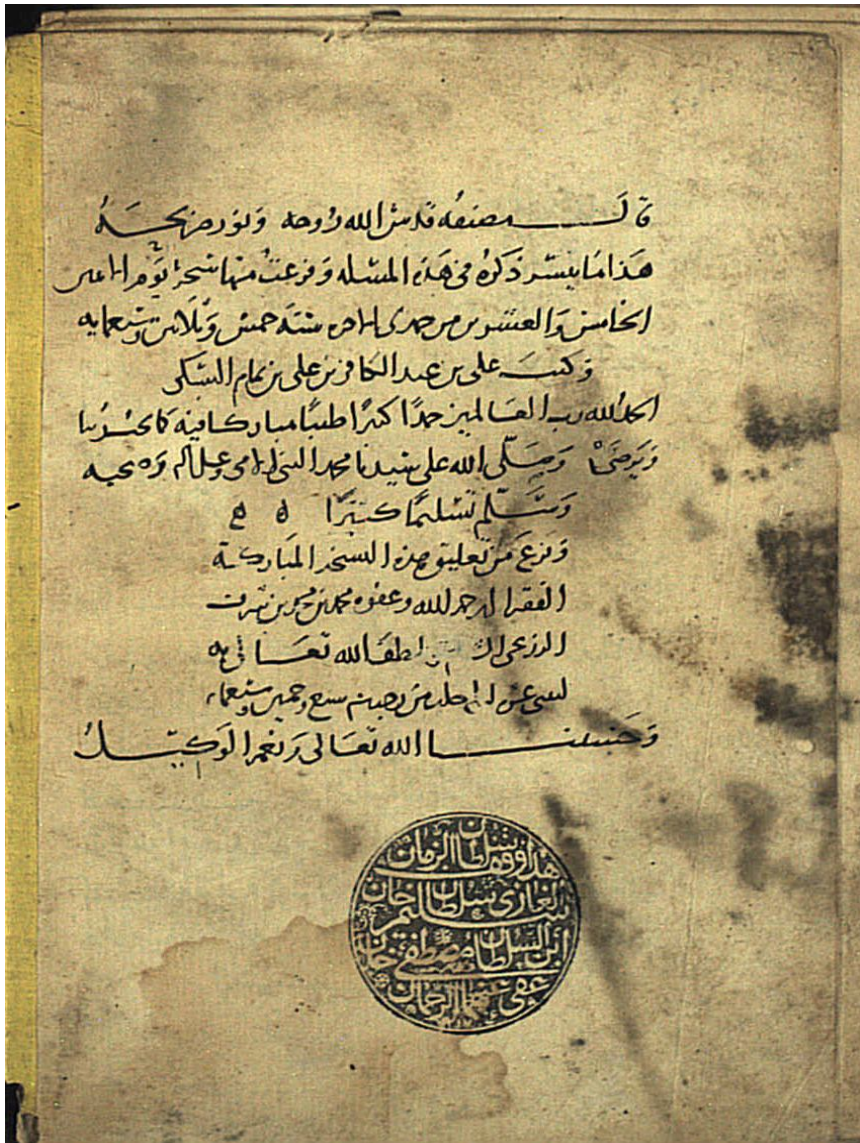 قال مصنفه قدس الله روحه ونور ضريحه
هذا ما تيسر ذكره في هذه المسئله وفرغت منها سحر يوم الاثنين
الخامس والعشرين من جمدى الاخره سنة خمس وثلاثين وسبعمايه
وكتب علي بن عبد الكافي بن علي بن تمام السبكي
الحمد لله رب العالمين حمدًا كثيرًا طيبًا مباركا فيه كما يحب ربنا
ويرضى وصلى الله على سيدنا محمد النبي الامي وعلى اله وصحبه
وسلم تسليمًا كثيرًا
وفرغ من تعليق هذه النسخة المباركة
الفقير الى رحمة الله وعفوه محمد بن بن شرف
الزرعي لطف الله تعالى به
من رجب سنة سبع وخمسين وسبعماية
وحسبنا الله تعالى ونعم الوكيل
هذا وقف سلطان الزمان
الغازي سلطان سليم خان
ابن السلطان مصطفى خان
عفى عنهما الرحمان